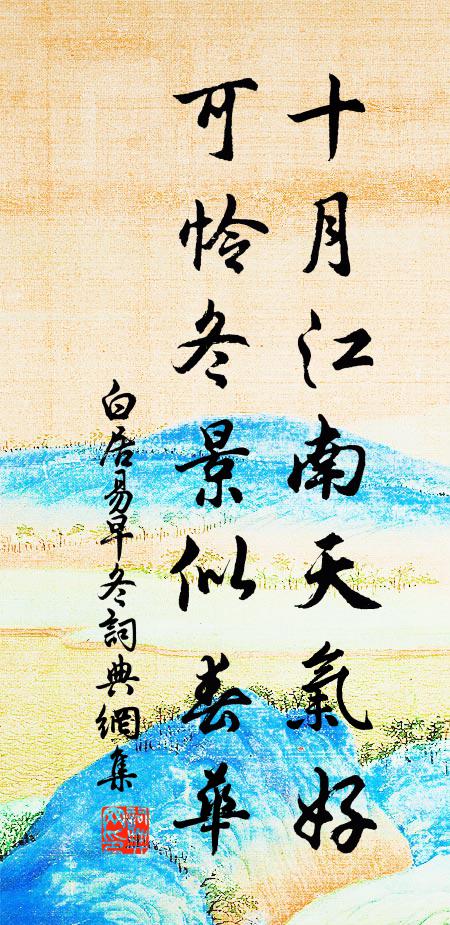 十月江南天氣好
可憐冬景似春華
白居易早冬詞典網集